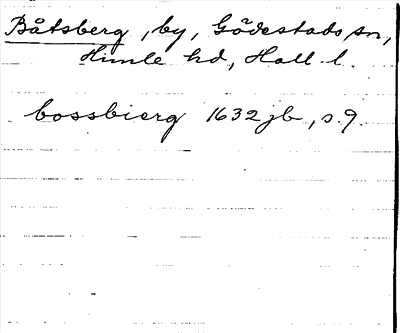 Båtsberg, by, Gödestads sn,
Himle hd, Hall. l.
bossbierg 1632 jb, s. 9.